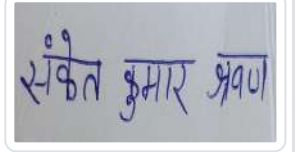 संकेत कुमार श्रवण